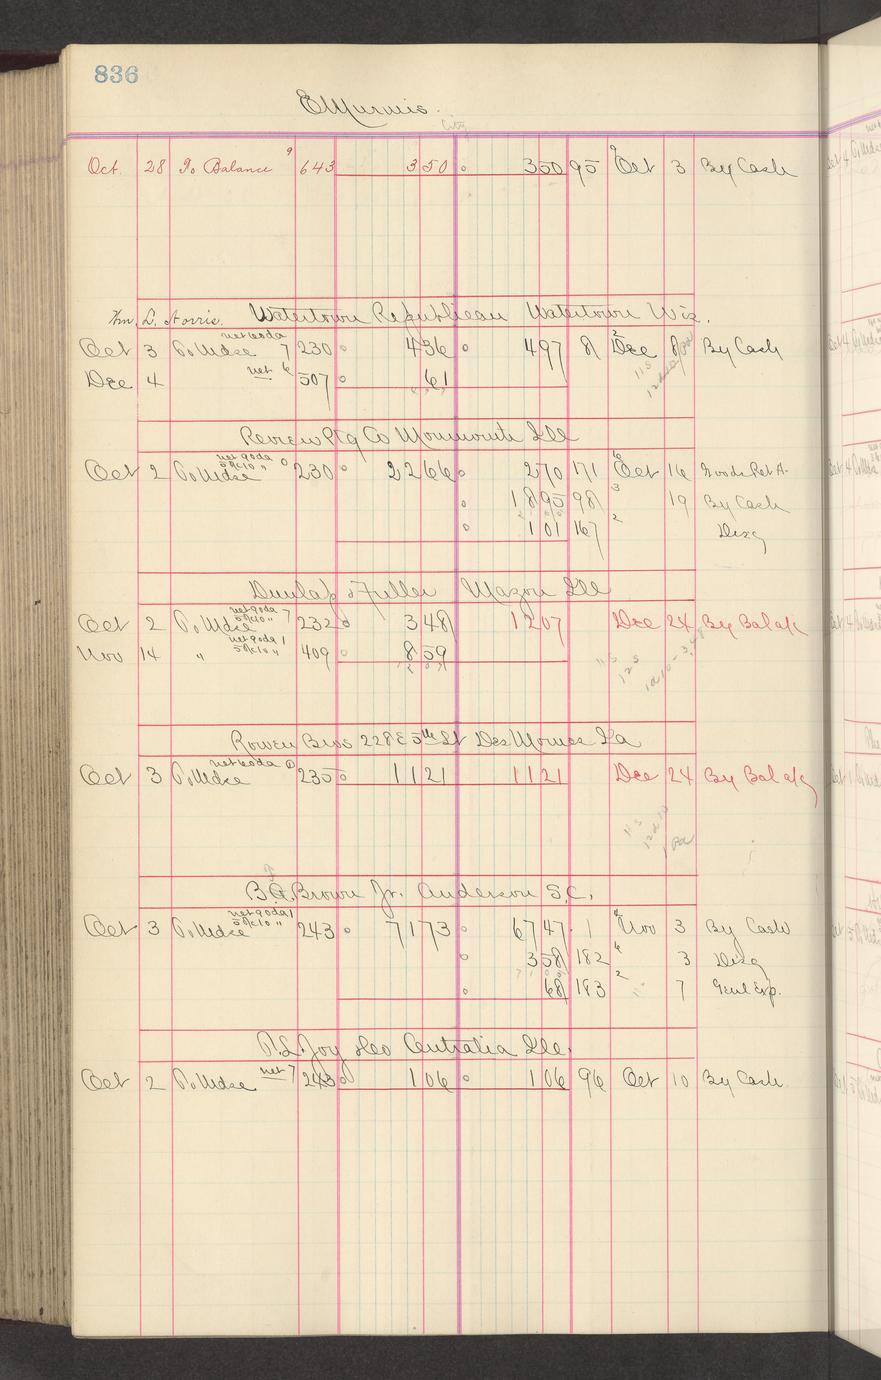 836
E Murnis.
City
Oct. 28 To Balance 9 643 3 50 350 95 Oct 3 By Cash
Wm. L. Norris. Watertown Republican Watertown Wis.
Oct 3 To Mdse 7 230 4 36 4 97 81 Dec 8 By Cash
Dec 4 net 6 507 61
Review Ptg Co Monmouth Ill
net 90da
Oct 2 To Mdse 5%10 " 0 230 22 66 2 70 171 Oct 16 Goods Ret A.
18 95 98 3 19 By Cash
1 01 167 2 Disc
Dunlap & Fuller Mazon Ill
net 90da 7
Oct 2 To Mdse 5%10 " 232 3 48 12 07 Dec 24 By Bal a/c
net 90da 1
Nov 14 " 5%10 " 409 8 59
Rowen Bros 228 E 5th St Des Moines Ia
Oct 3 To Mdse 235 11 21 11 21 Dec 24 By Bal a/c
Brown Jr. Anderson S.C.
net 90da 1
Oct 3 To Mdse 5%10 " 243 71 73 67 47 1 Nov 3 By Cash
3 58 182 3 Disc
68 183 2 7 Genl Exp.
P.L. Joy & Co Centralia Ill.
Oct 2 To Mdse net 7 243 1 06 1 06 96 Oct 10 By Cash